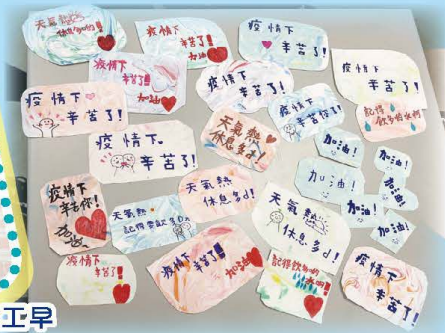 天氣熱
休息多d!
疫情下
辛苦了!!
疫情下
辛苦了!
疫情下
辛苦了!!
加油
疫情下
辛苦了!
疫情下
辛苦了!
疫情下
辛苦了!
疫情下
辛苦你了!
記得
飲多啲水呀
疫情下
辛苦了!
天氣熱
休息多d!
加油!
加油!
加油!
加油!
疫情下
辛苦你!
天氣熱
記得要飲多D水
疫情下
辛苦了!
天氣熱
休息多d!
疫情下
辛苦了!
疫情下
辛苦了!!
加油
記得飲多啲
水呀!!
疫情下
辛苦了!
工早